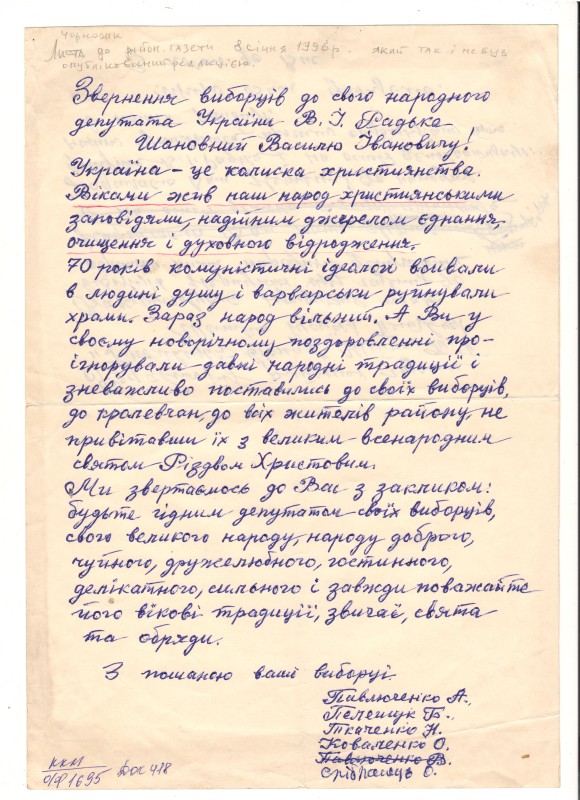 Чорновик
Лист до район. газети 8 січня 1996 р. який так і не був
опублікований редакцією.
Звернення виборців до свого народного
депутата України В. І. Фадька
Шановний Василю Івановичу!
Україна – це колиска християнства.
Віками жив наш народ християнськими
заповідями, надійним джерелом єднання,
очищення і духовного відродження.
70 років комуністичні ідеологі вбивали
в людині душу і варварськи руйнували
храми. Зараз народ вільний. А Ви у
своєму новорічному поздоровленні про-
ігнорували давні народні традиції і
зневажливо поставились до своїх виборців,
до кролевчан, до всіх жителів району, не
привітавши їх з великим всенародним
святом Різдвом Христовим.
Ми звертаємось до Вас з закликом:
будьте гідним депутатом своїх виборців,
свого великого народу, народу доброго,
чуйного, дружелюбного, гостинного,
делікатного, сильного і завжди поважайте
його вікові традиції, звичаї, свята
та обряди.
З пошаною ваші виборці
Павлюченко А.,
Пелещук Б.,
Ткаченко Н.
Коваленко О.
Павлюченко В.
О.
ККМ
О/Ф 1695 Док 418